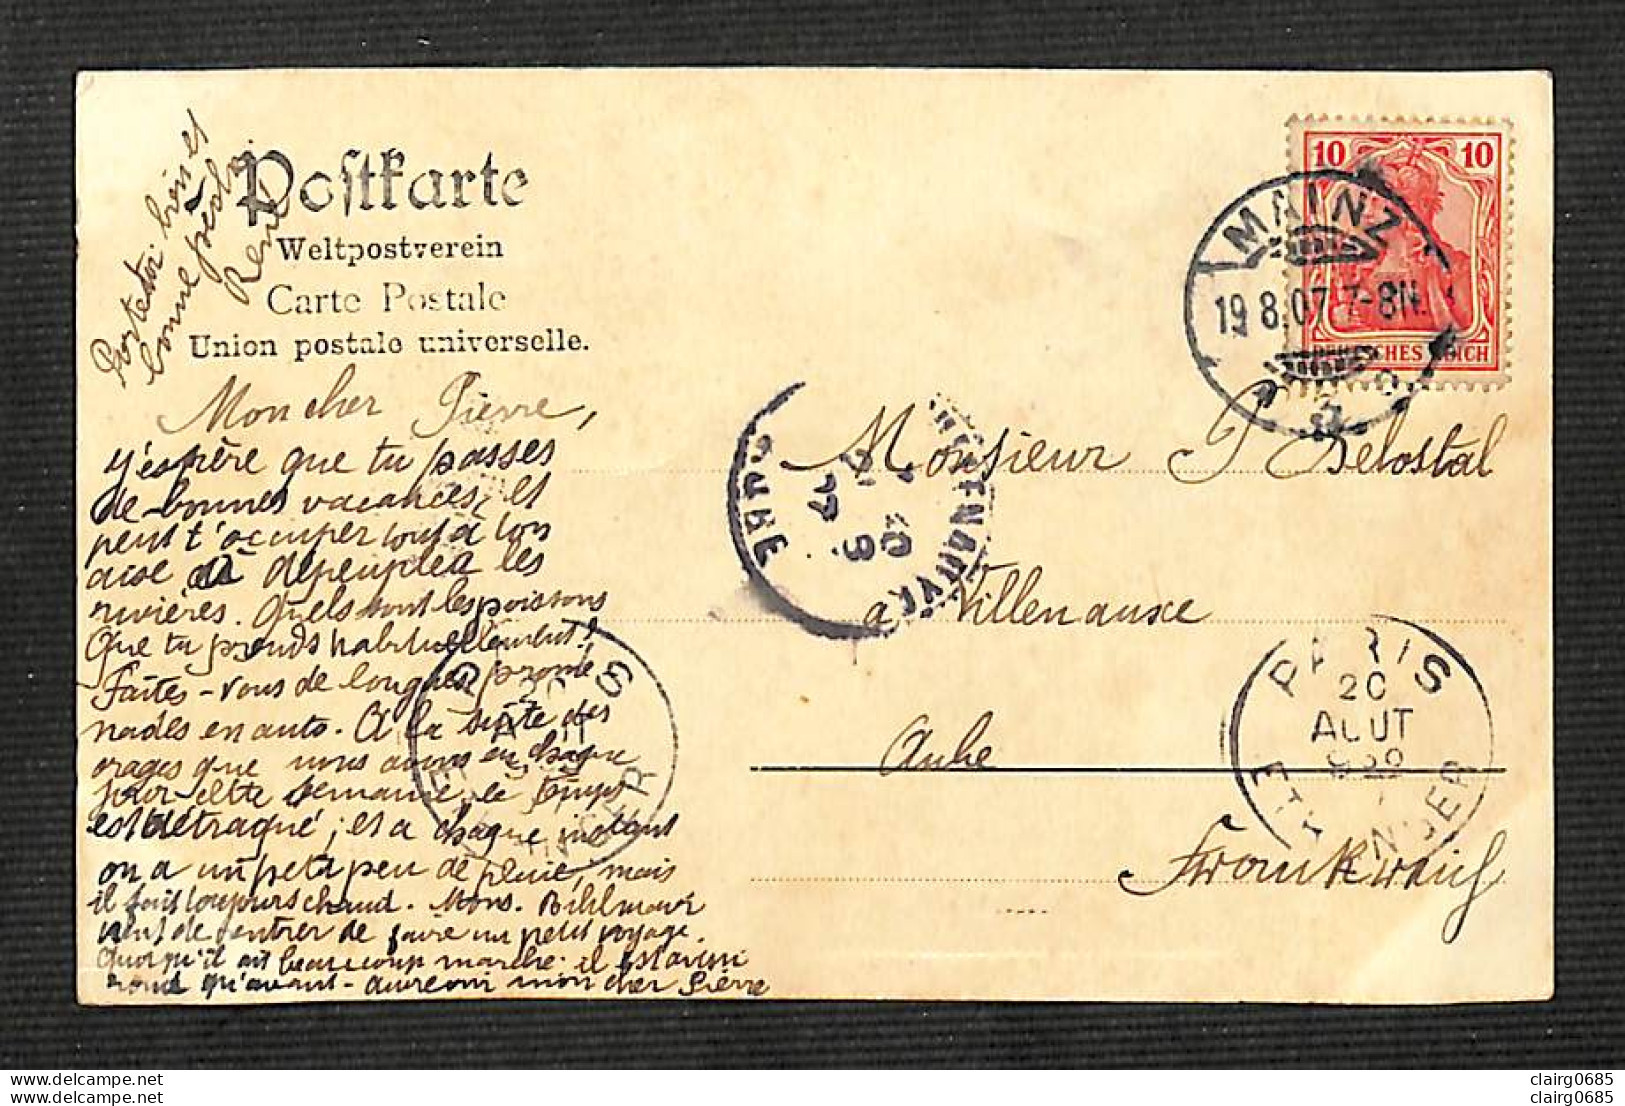 Porte toi bien et
bonne pêche.
René
Postkarte
Weltpostverein
Carte Postale
Union postale universelle.
Mon cher Pierre,
J'espère que tu passes
de bonnes vacances, et
peux t'occuper tout à ton
aise à dépeupler les
rivières. Quels sont les poissons
Que tu prends habituellement?
Faites-vous de longues promé
nades en auto. A la suite des
orages que nous avons eu chaque
jour cette semaine, le temps
est détraqué; et a chaque instant
on a un petit peu de pluie, mais
il fait toujours chaud. Mons. Bihlmaux
vient de rentrer de faire un petit voyage.
Quoiqu'il ait beaucoup marché il est aussi
rond qu'avant - aurevoir mon cher Pierre
10 10
DEUTSCHES REICH
MAINZ
19.8.07.7-8N.
Monsieur P Delostal
a Villenauxe
Aube
Frankreich
VILLENAUXE
AUBE
PARIS
20
AOUT
ETRANGER
PARIS
20
AOUT
ETRANGER
clairg0685
clairg0685